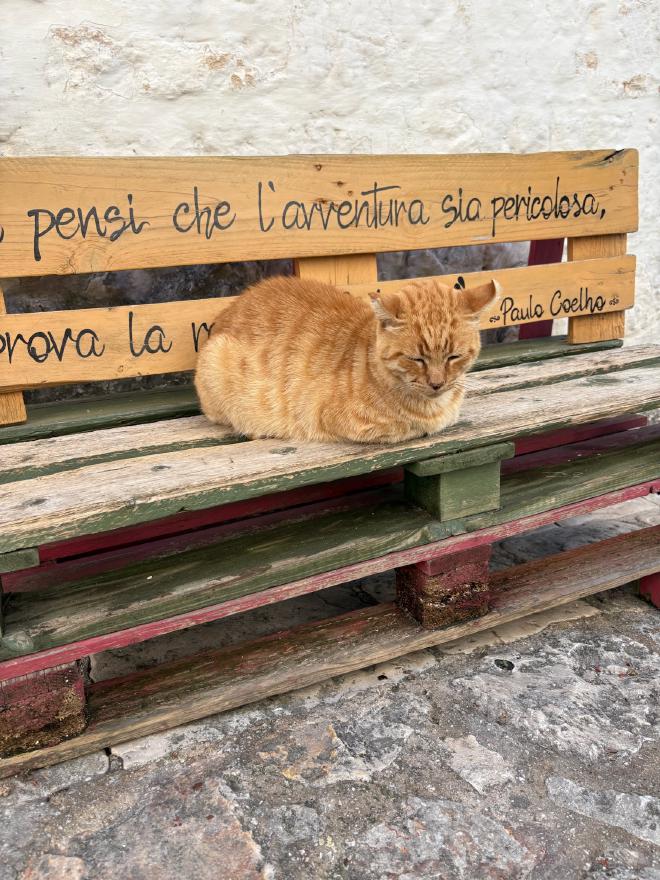 pensi che l'avventura sia pericolosa,
prova la
Paulo Coelho